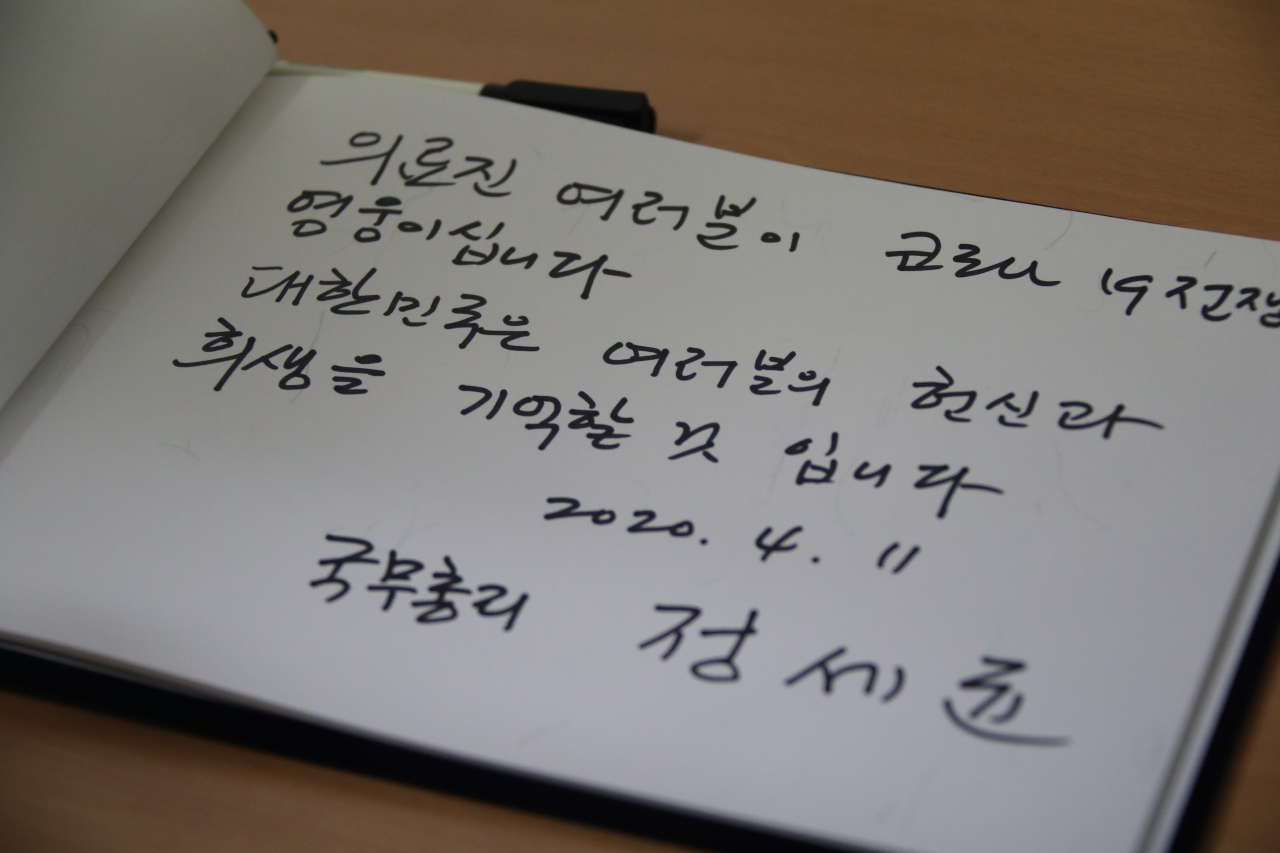 의료진 여러분이 코로나 19 전쟁
영웅이십니다
대한민국은 여러분의 헌신과
희생을 기억할 것 입니다
2020. 4. 11
국무총리 정세균